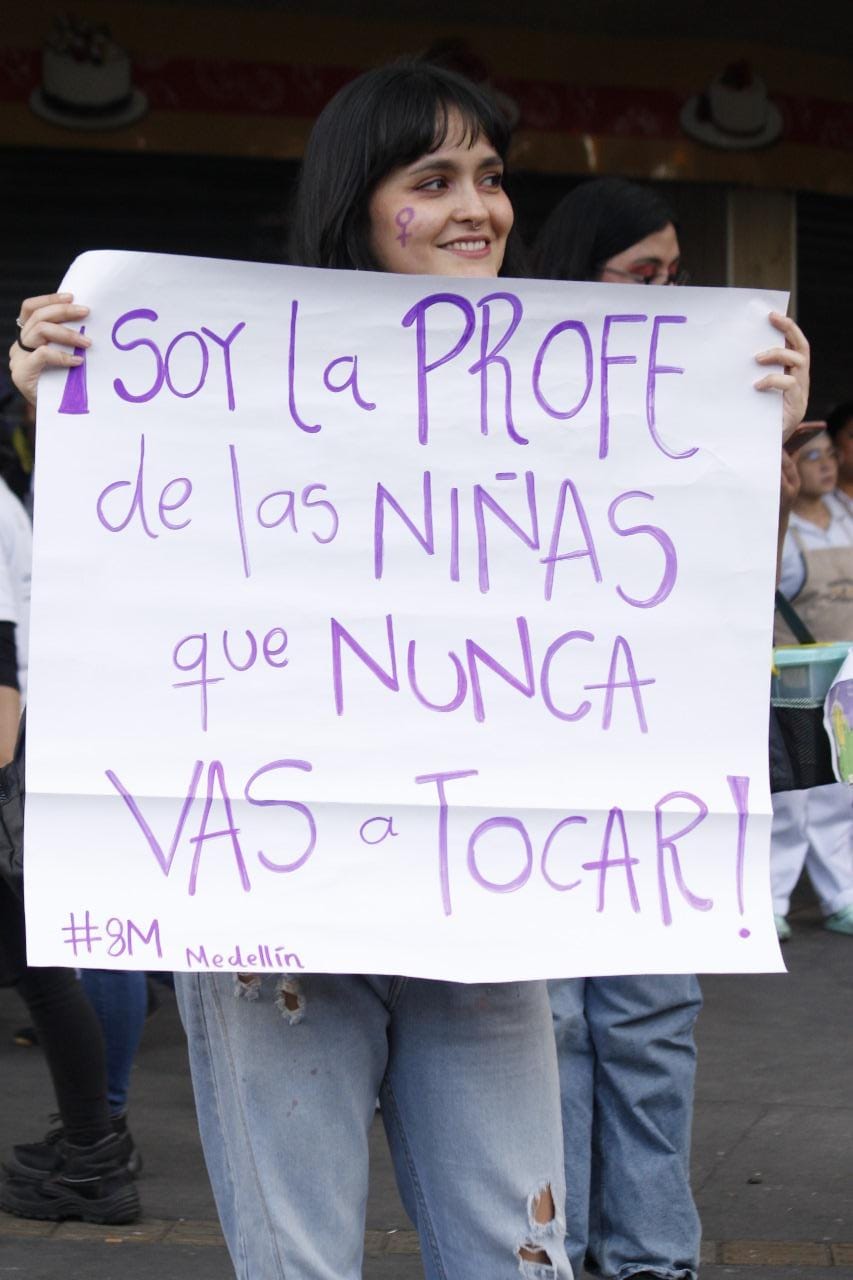 ¡SOY la PROFE
de las NIÑAS
que NUNCA
VAS a TOCAR!
#8M Medellín